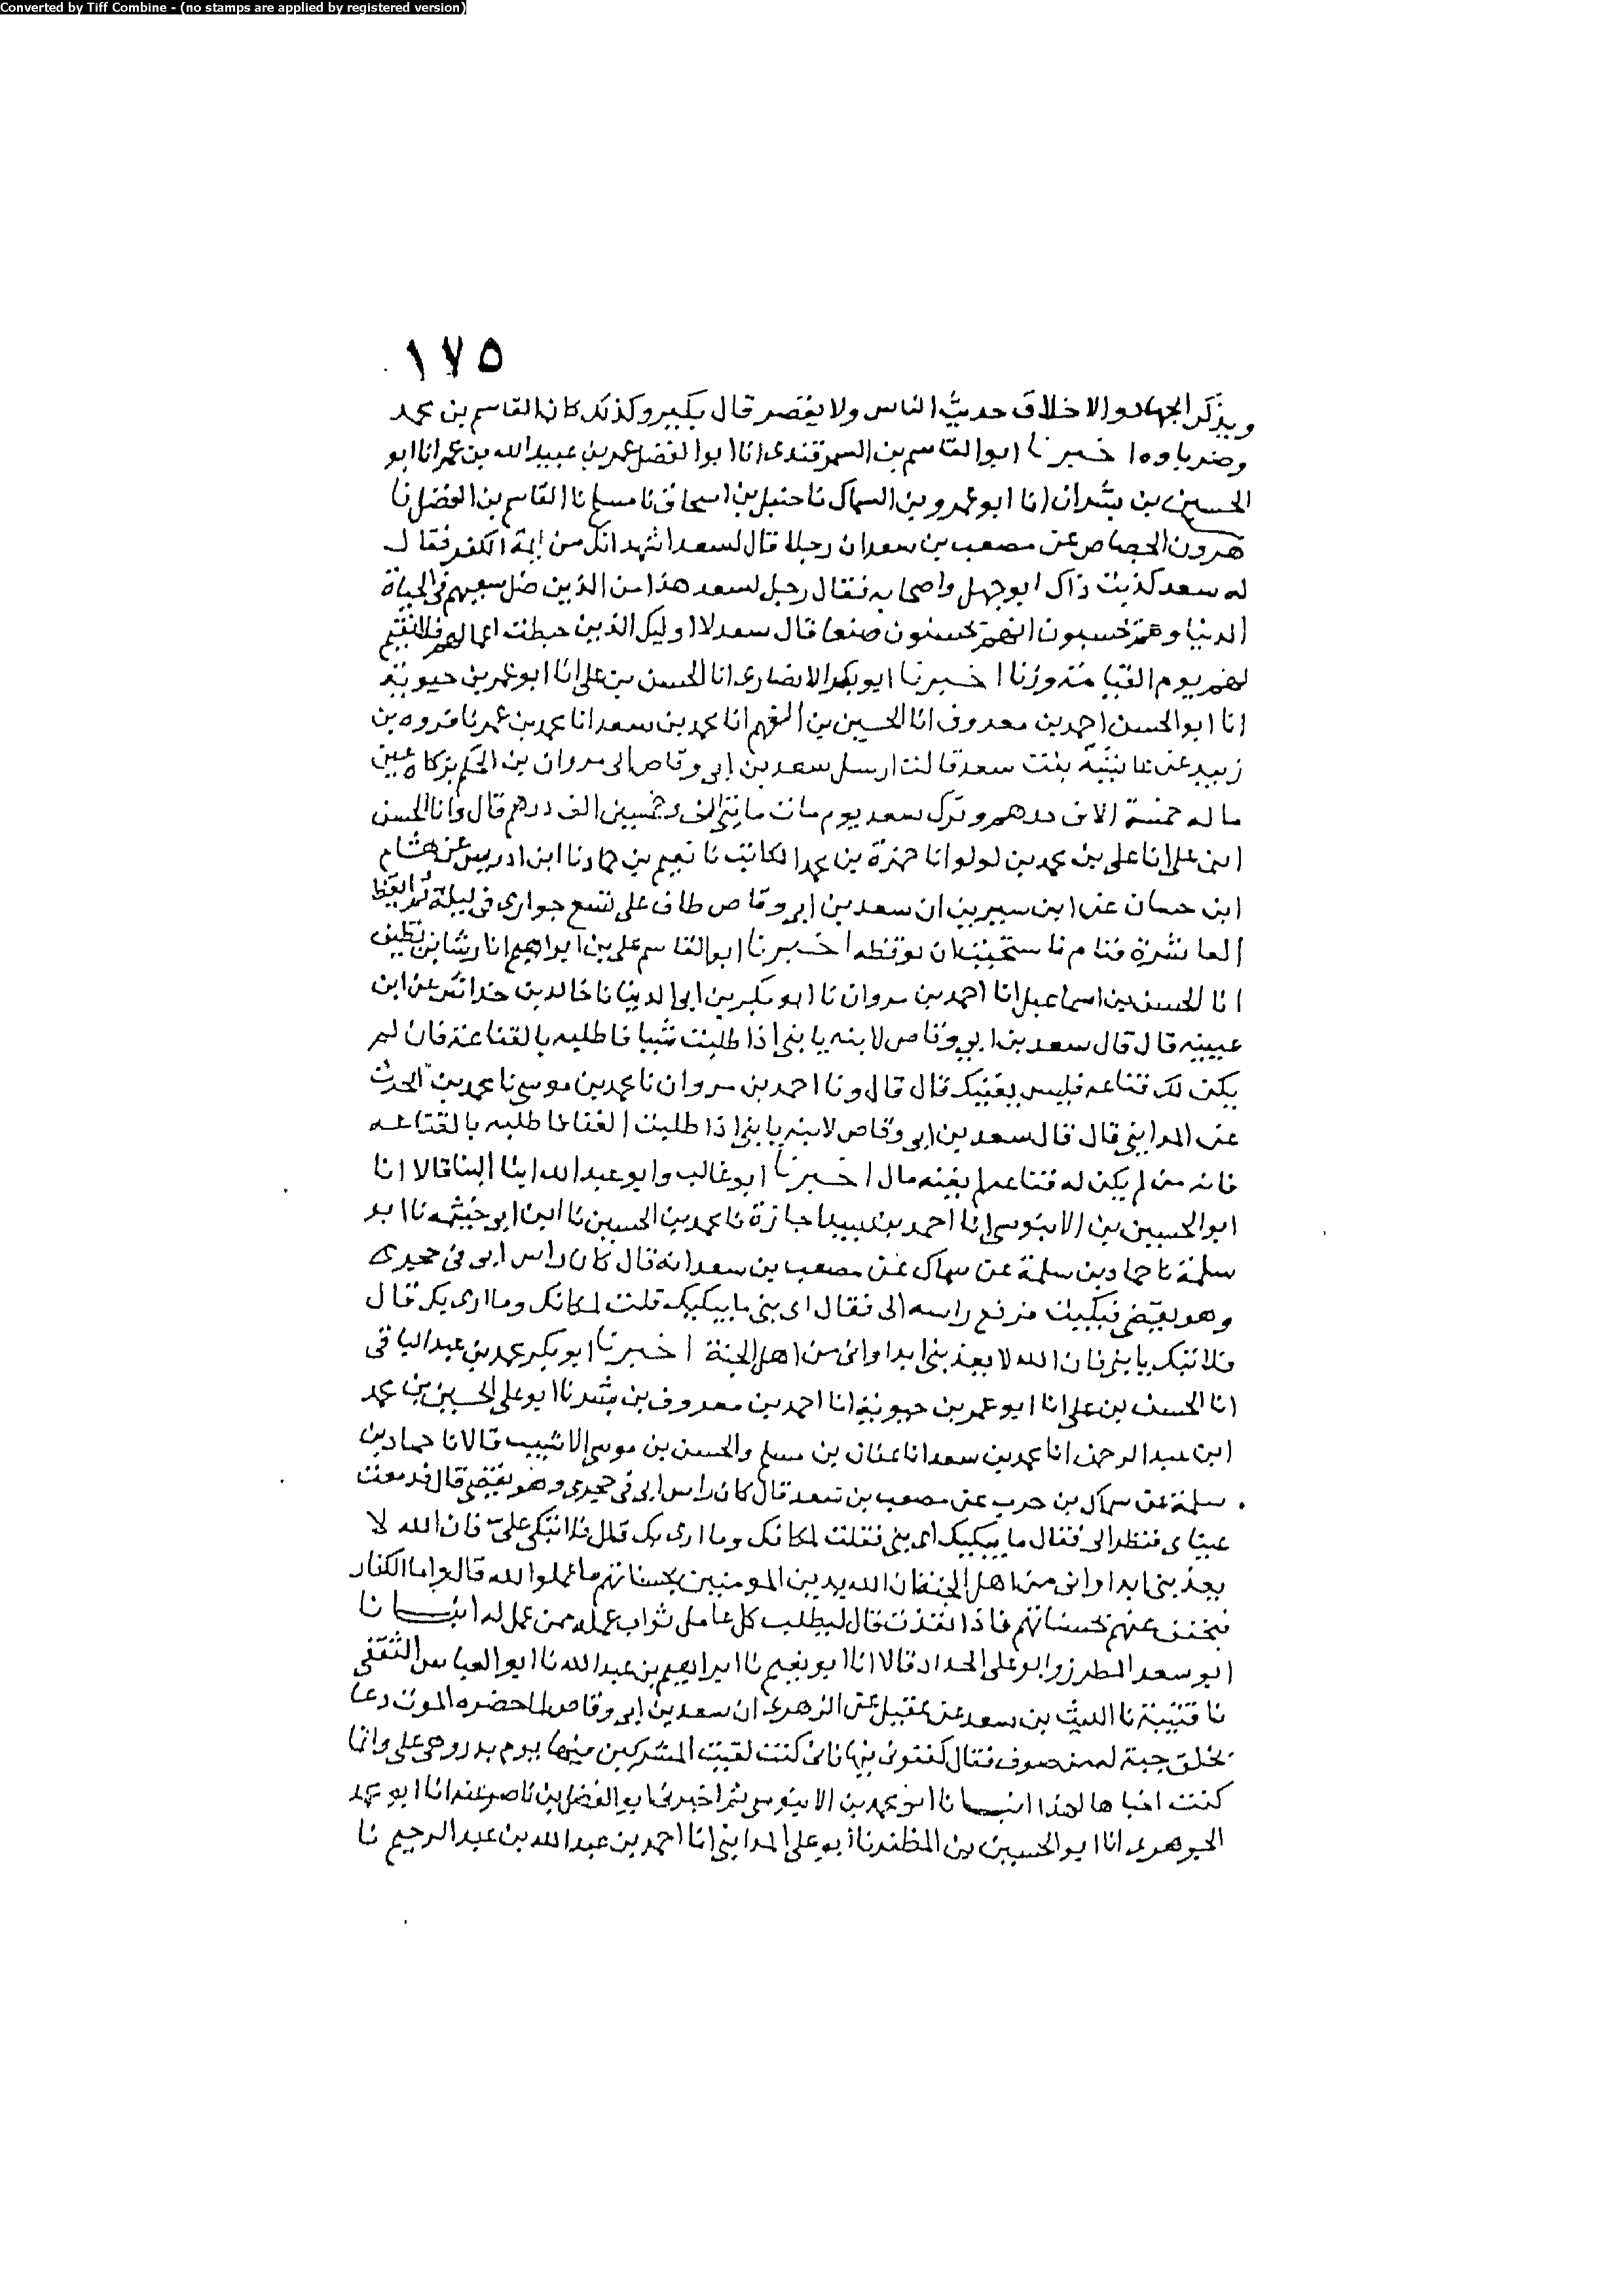 Converted by Tiff Combine - (no stamps are applied by registered version)
١٧٥
ويذكر الجهاد والاخلاق حديث الناس ولا يقصر قال بكير وكذلك كان القاسم بن محمد
وضرباوه اخبرنا ابو القاسم بن السمرقندى انا ابو الفضل عمر بن عبيد الله بن عمر انا ابو
الحسين بن بشران انا ابو عمرو بن السماك نا حنبل بن اسحاق نا مسلم نا القاسم بن الفضل نا
هرون الجصاص عن مصعب بن سعد ان رجلا قال لسعد اشهد انك من ايمة الكفر فقال
له سعد كذبت ذاك ابو جهل واصحابه فقال رجل لسعد هذا من الذين ضل سعيهم فى الحياة
الدنيا وهم يحسبون انهم يحسنون صنعا قال سعد لا اوليك الذين حبطت اعمالهم فلا نقيم
لهم يوم القيامة وزنا اخبرنا ابو بكر الانصارى انا الحسن بن على انا ابو عمر بن حيويه
انا ابو الحسن احمد بن معروف انا الحسين بن الفهم انا محمد بن سعد انا محمد بن عمر نا فروه بن
زبيد عن عايشة بنت سعد قالت ارسل سعد بن ابى وقاص الى مروان بن الحكم بزكاة عين
ماله خمسة الاف درهم وترك سعد يوم مات مايتى الف وخمسين الف درهم قال وانا الحسن
ابن على انا على بن محمد بن لولو انا حمزة بن محمد الكاتب نا نعيم بن حماد نا ابن ادريس عن هشام
ابن حسان عن ابن سيرين ان سعد بن ابى وقاص طاف على تسع جوارى فى ليلة ثم ايقظ
العاشرة فنام فاستحيت ان توقظه اخبرنا ابو القاسم على بن ابراهيم انا رشا بن نظيف
انا الحسن بن اسماعيل انا احمد بن مروان نا ابو بكر بن ابى الدنيا نا خالد بن خداش عن ابن
عيينه قال قال سعد بن ابى وقاص لابنه يا بنى اذا طلبت شيا فاطلبه بالقناعة فان لم
يكن لك قناعه فليس يغنيك قال قال ونا احمد بن مروان نا محمد بن موسى نا محمد بن الحرث
عن المداينى قال قال سعد بن ابى وقاص لابنه يا بنى اذا طلبت الغنا فاطلبه بالقناعه
فانه من لم يكن له قناعه لم يغنه مال اخبرنا ابو غالب وابو عبد الله ابنا البنا قالا انا
ابو الحسين بن الابنوسى انا احمد بن عبيد اجازة نا محمد بن الحسين نا ابن ابى خيثمه نا ابو
سلمة نا حماد بن سلمة عن سماك عن مصعب بن سعد انه قال كان راس ابى فى حجرى
وهو يقضى فبكيت فرفع راسه الى فقال اى بنى ما يبكيك قلت لمكانك وما ارى بك قال
فلا تبك يا بنى فان الله لا يعذبنى ابدا وانى من اهل الجنة اخبرنا ابو بكر محمد بن عبد الباقى
انا الحسن بن على انا ابو عمر بن حيوية انا احمد بن معروف بن بشر نا ابو على الحسين بن محمد
ابن عبد الرحمن انا محمد بن سعد انا عفان بن مسلم والحسن بن موسى الاشيب قالا نا حماد بن
سلمة عن سماك بن حرب عن مصعب بن سعد قال كان راس ابى فى حجرى وهو يقضى قال فدمعت
عيناى فنظر الى فقال ما يبكيك اى بنى فقلت لمكانك وما ارى بك قال فلا تبكى على فان الله لا
يعذبنى ابدا وانى من اهل الجنة ان الله يدين المومنين بحسناتهم ما عملوا لله قال واما الكفار
فيخفف عنهم بحسناتهم فاذا نفذت قال ليطلب كل عامل ثواب عمله ممن عمل له انبانا
ابو سعد المطرز وابو على الحداد قالا انا ابو نعيم نا ابراهيم بن عبد الله نا ابو العباس الثقفى
نا قتيبة نا الليث بن سعد عن عقيل عن الزهرى ان سعد بن ابى وقاص لما حضره الموت دعا
بخلق جبة له من صوف فقال كفنونى فيها فانى كنت لقيت المشركين فيها يوم بدر وهى على وانما
كنت اخباها لهذا انبانا ابو محمد بن الابنوسى ثم اخبرنا ابو الفضل بن ناصر عنه انا ابو محمد
الجوهرى انا ابو الحسين بن المظفر نا ابو على المداينى انا احمد بن عبد الله بن عبد الرحيم نا